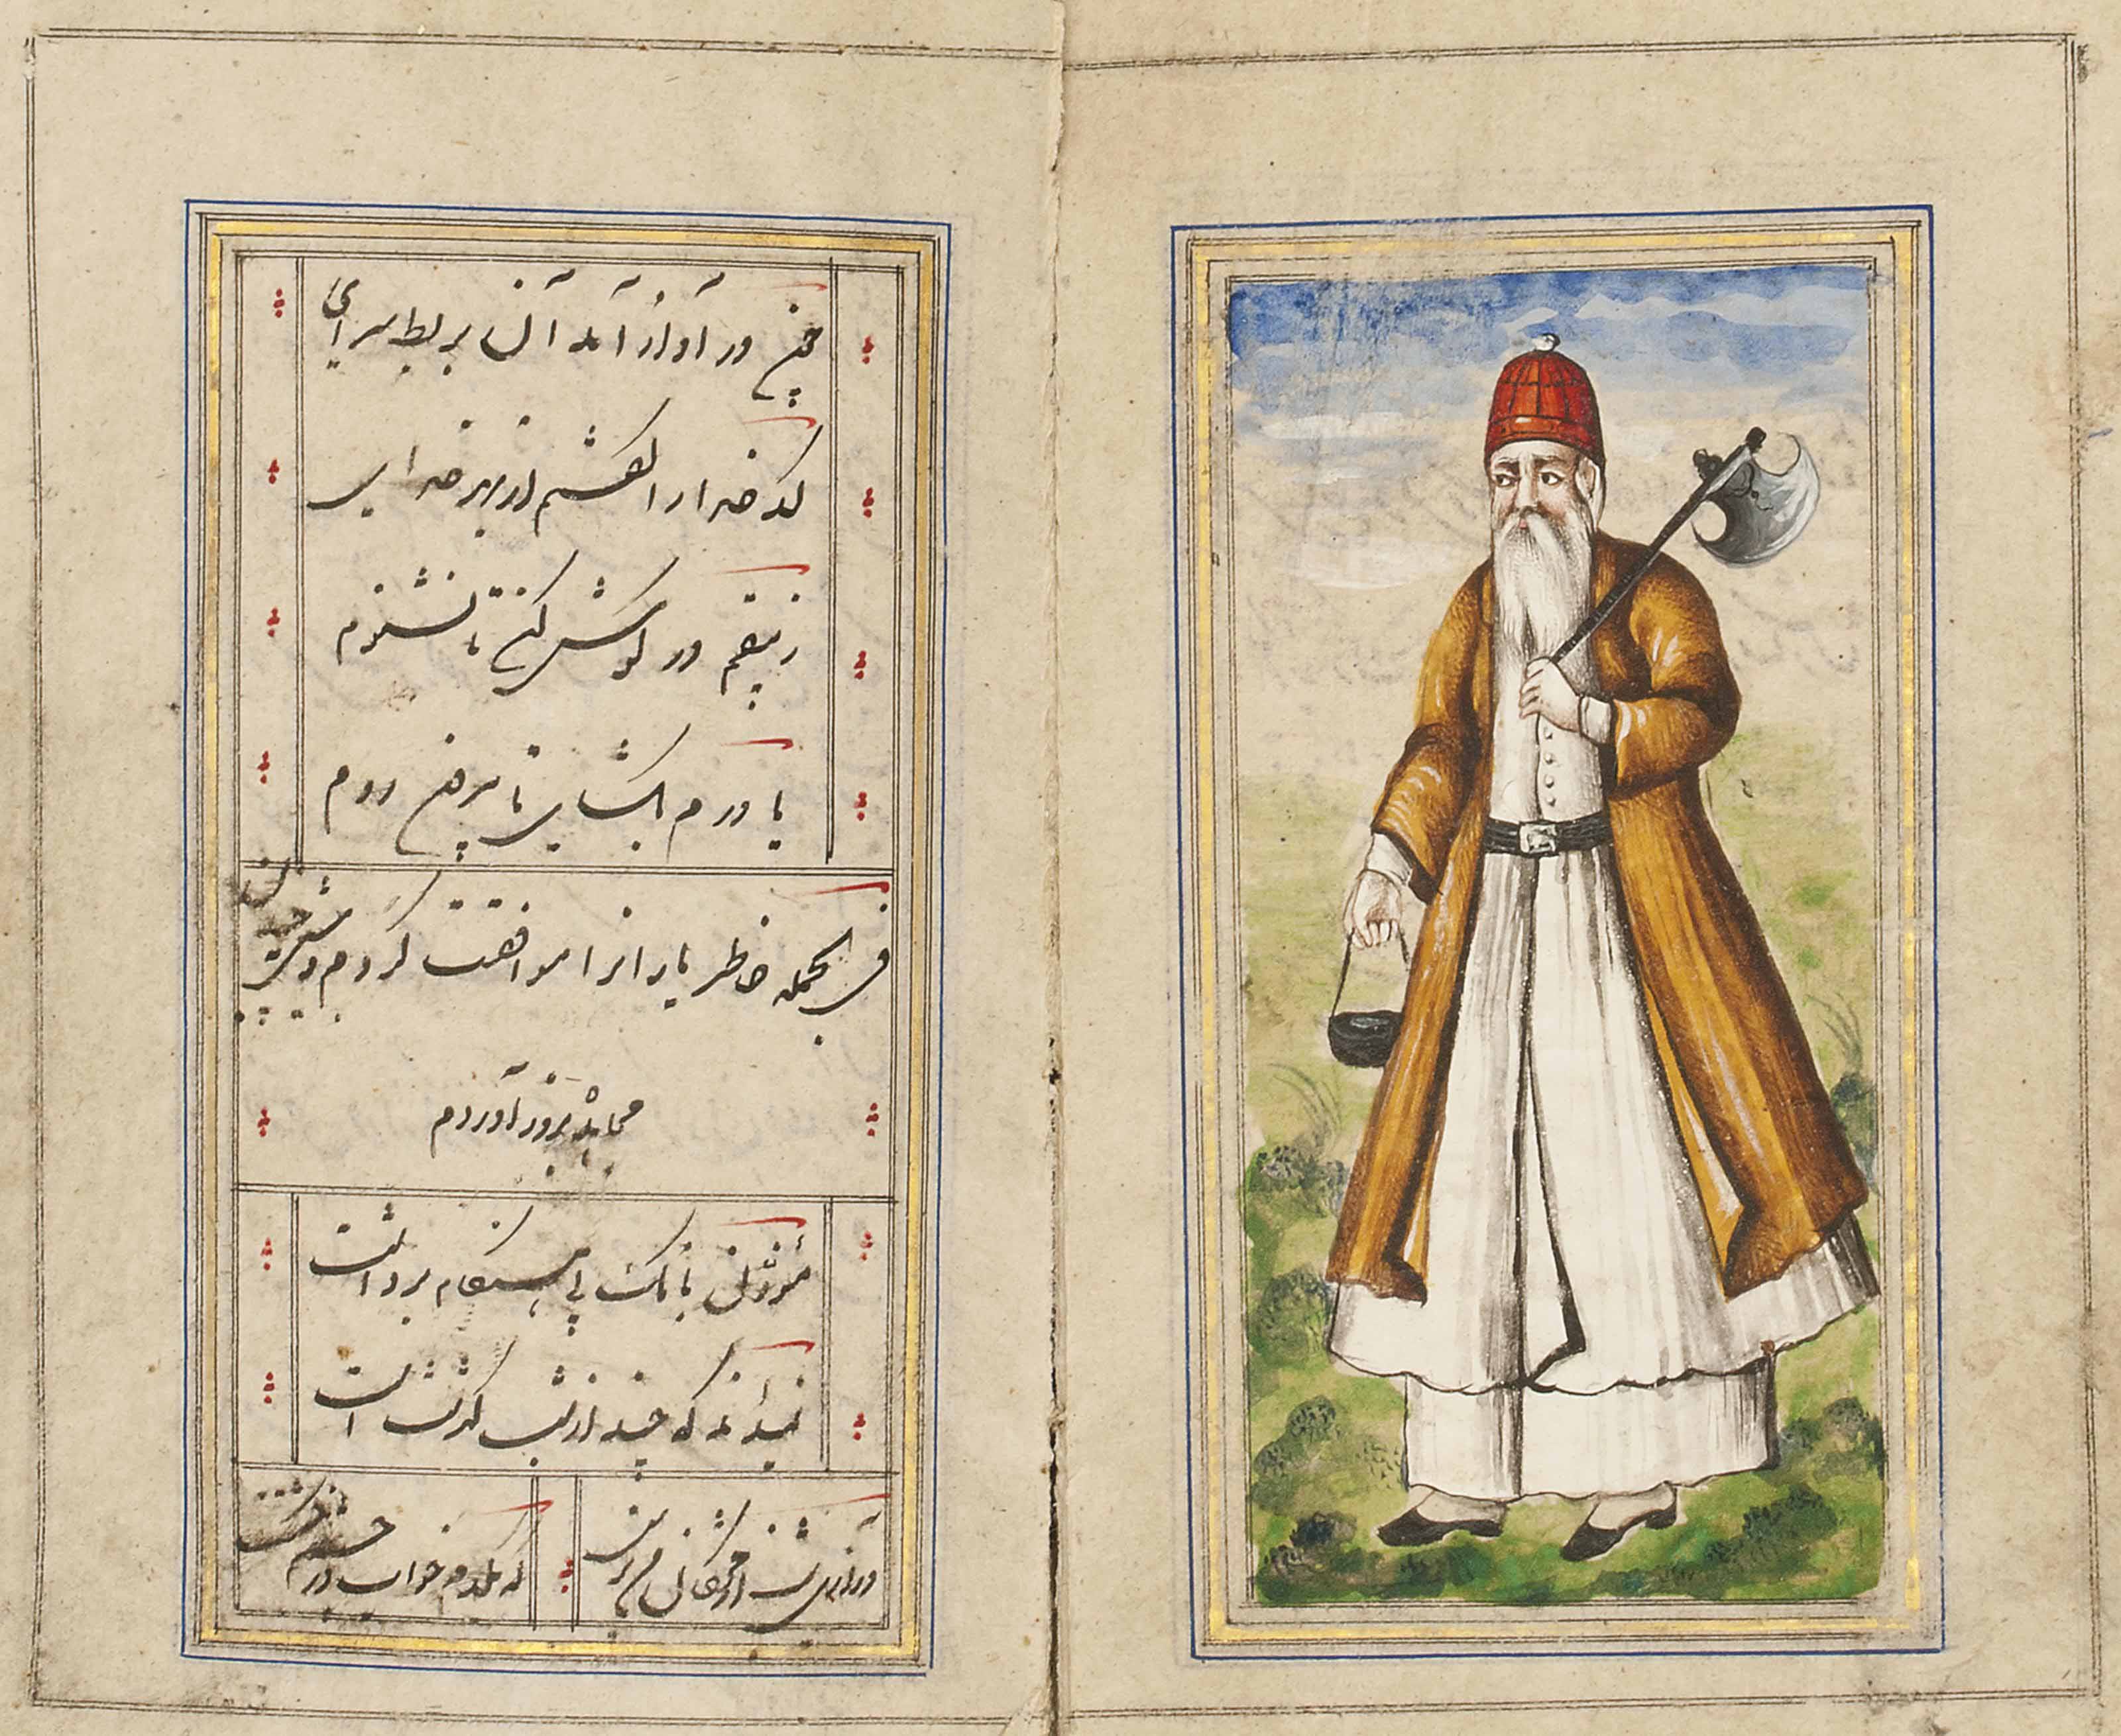 چون در آواز آمد آن بربط سرای
کدخدا را گفتم از بهر خدای
زیبقم در گوش کن تا نشنوم
یا درم بگشای تا بیرون روم
فی الجمله خاطر یارانرا موافقت کردم و شبی بچندین
مجاهده بروز آوردم
مؤذن بانگ بی هنگام برداشت
نمیداند که چند از شب گذشت است
درازی شب از مژگان من پرس
که یکدم خواب در چشمم نگشتست